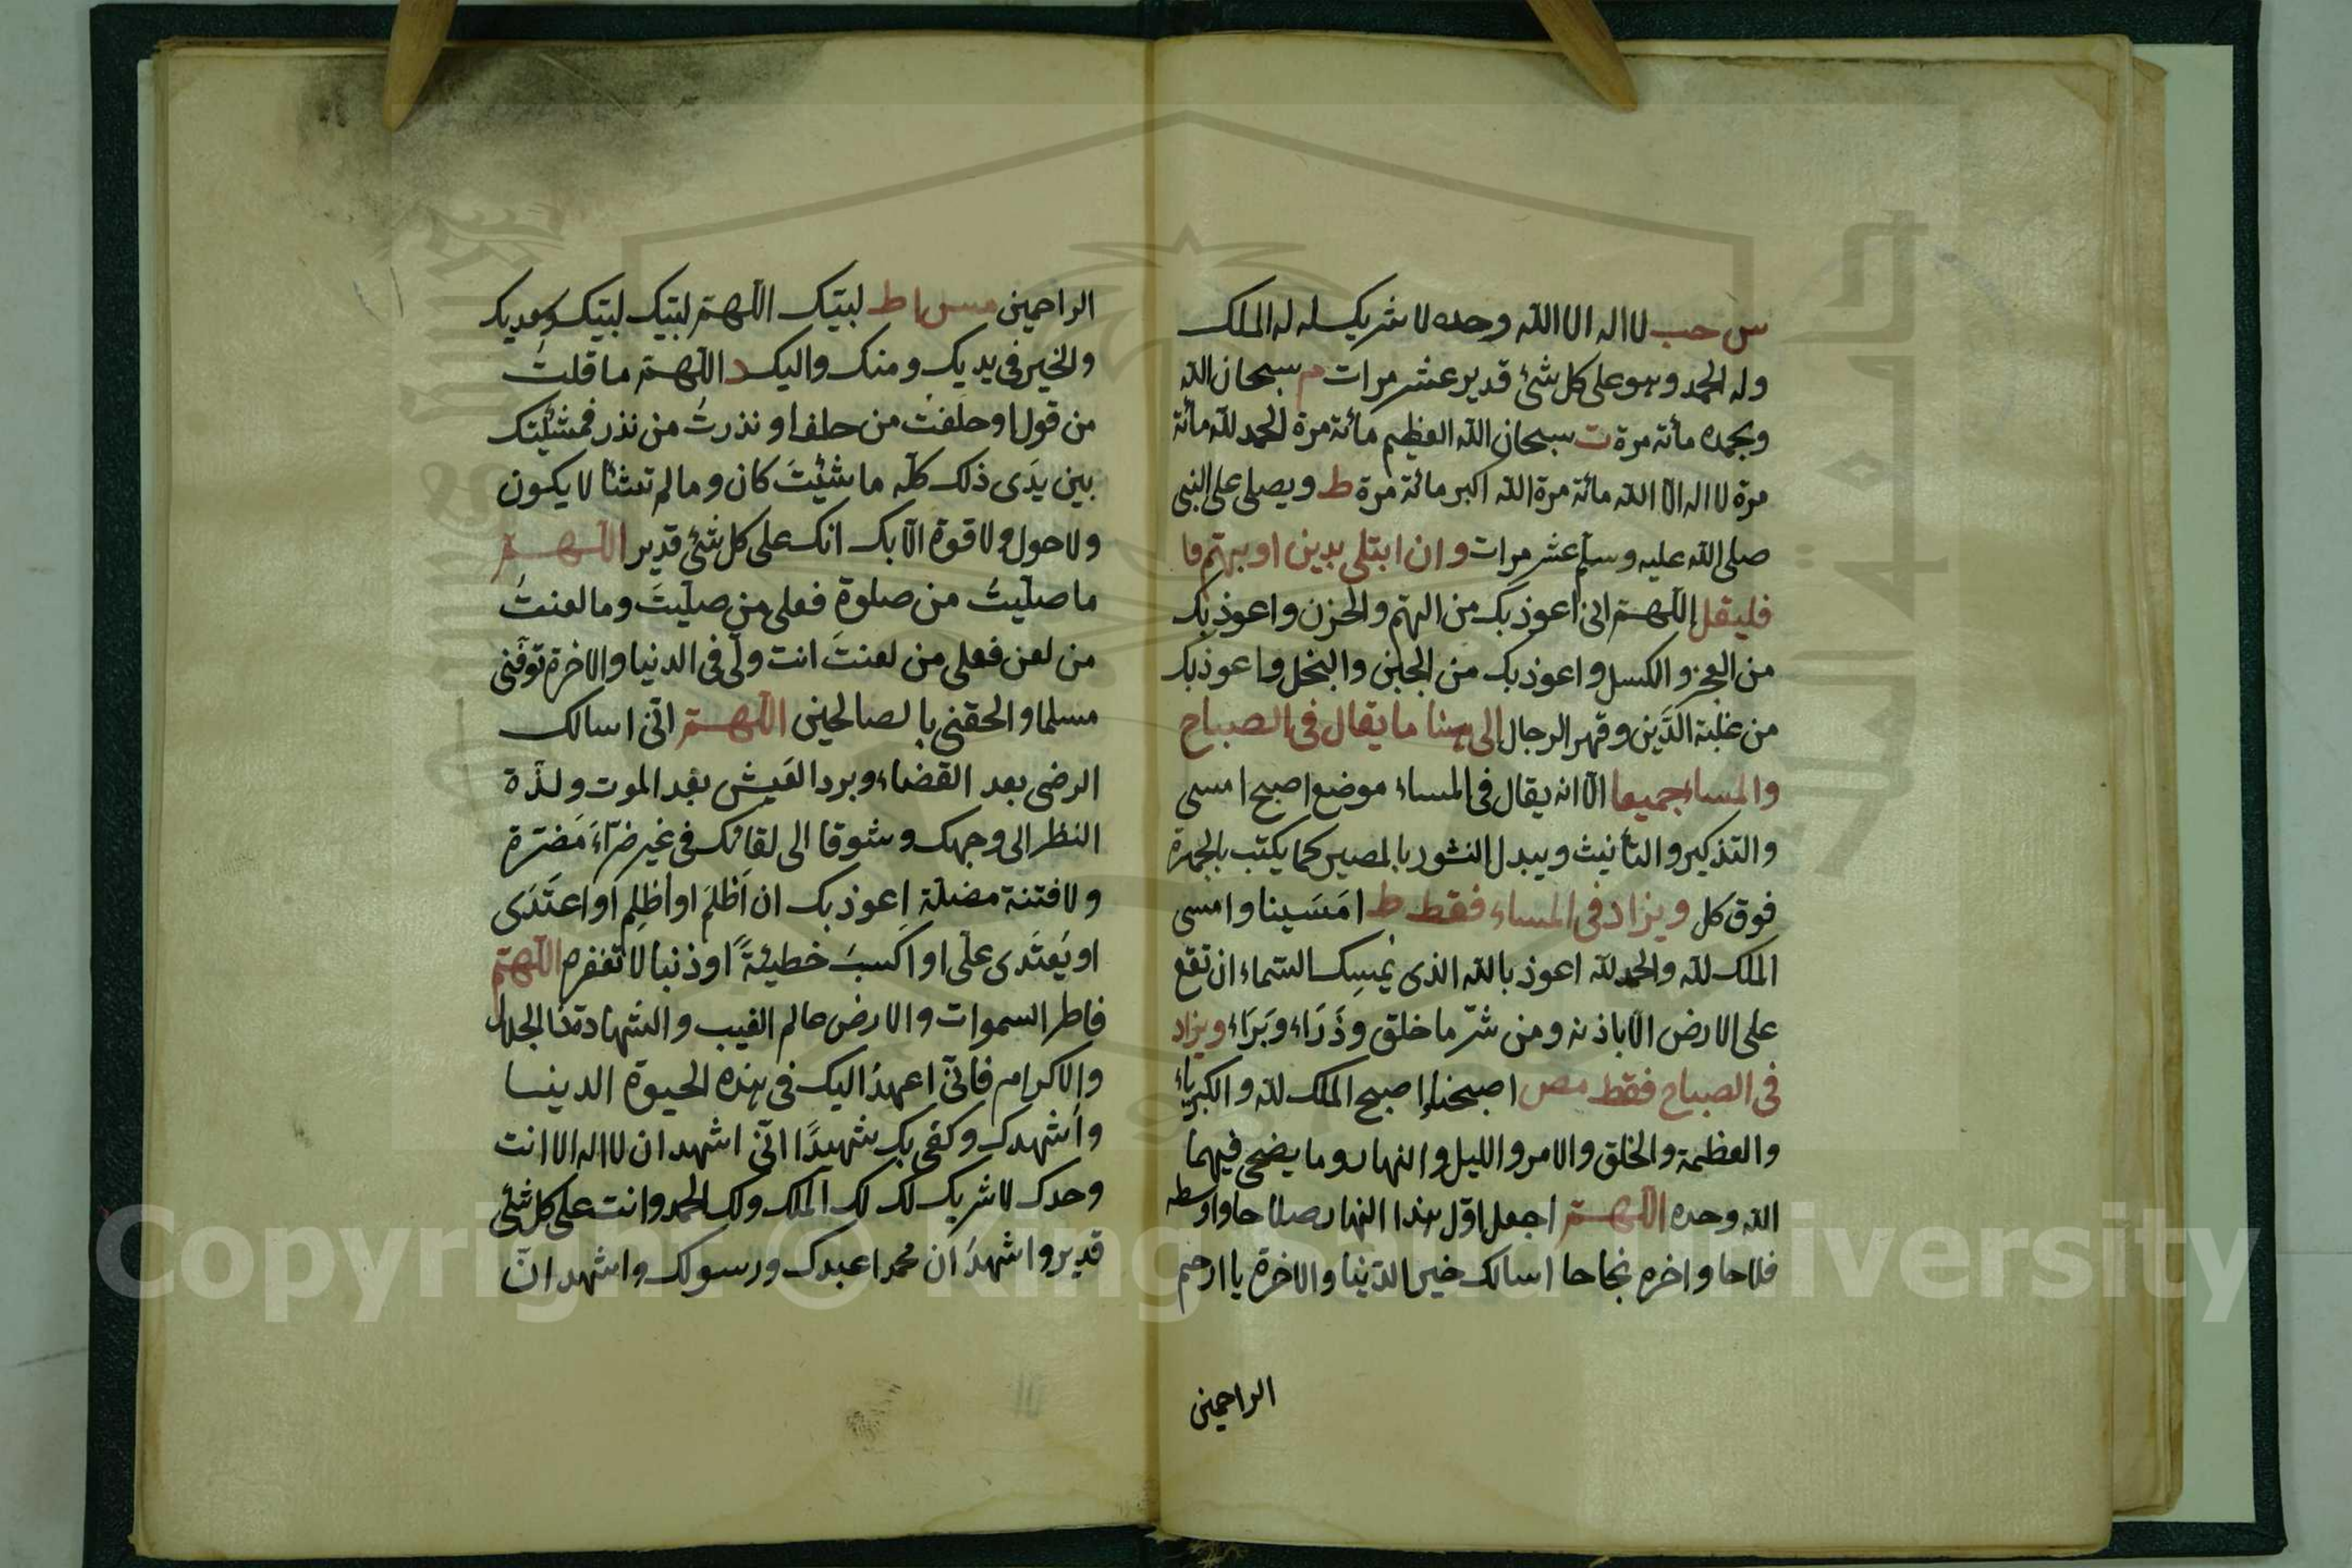 س حب لا اله الا الله وحده لا شريك له له الملك
وله الحمد وهو على كل شئ قدير عشر مرات م سبحان الله
وبحمده مأئة مرة ت سبحان الله العظيم مائة مرة الحمد لله مائة
مرة لا اله الا الله مائة مرة الله اكبر مائة مرة ط ويصلى على النبى
صلى الله عليه وسلم عشر مرات وان ابتلى بدين او بهم فا
فليقل اللهم انى اعوذ بك من الهم والحزن واعوذ بك
من العجز والكسل واعوذ بك من الجبن والبخل واعوذ بك
من غلبة الدَّين وقهر الرجال الى هنا ما يقال فى الصباح
والمساء جميعا الّا انه يقال فى المساء موضع اصبح امسى
والتذكير والتأنيث ويبدل النشور بالمصير كما يكتب بالحمرة
فوق كل ويزاد فى المساء فقط ط امَسَينا وامسى
الملك لله والحمد لله اعوذ بالله الذى يُمسِك السّماء ان تقع
على الارض الّا باذنه ومن شرّ ما خلق وذَرَاء وبَرَاء ويزاد
فى الصباح فقط مص اصبحنا واصبح الملك لله والكبرياء
والعظمة والخلق والامر والليل والنهار وما يضحى فيهما
الله وحده اللهم اجعل اوّل هذا النهار صلاحا واوسطه
فلاحا واخره نجاحا اسالك خير الدّنيا والاخرة يا ارحم
الراحمين
الراحمين مس اط لبيّك اللهمّ لبيّك لبيّك وسعديك
والخير فى يديك ومنك واليك د اللهمّ ما قلتُ
من قول او حلفتُ من حلف او نذرتُ من نذر فمشيّتك
بين يدَى ذلك كلّه ما شئتَ كان وما لم تشأ لا يكون
ولا حول ولا قوة الّا بك انك على كل شئ قدير اللهمّ
ما صلّيتُ من صلوة فعلى من صلّيتَ وما لعنتُ
من لعن فعلى من لعنتَ انت ولّى فى الدنيا والاخرة توفّنى
مسلما والحقنى بالصالحين اللهمّ انّى اسالك
الرضى بعد القضاء وبرد العَيش بعد الموت ولذّة
النظر الى وجهك وشوقا الى لقائك فى غير ضرّاءَ مَضرّة
ولا فتنة مضلّة اعوذ بك ان اَظلمَ او اُظلم او اعتَدَى
او يُعتَدى علّى او اكسبَ خطيئةً او ذنبا لا تغفره اللهمّ
فاطر السموات والارض عالم الغيب والشهادة ذا الجلال
والاكرام فانّى اعهدُ اليك فى هذه الحيوة الدينا
واُشهدك وكفى بك شهيدًا انّى اشهد ان لا اله الا انت
وحدك لا شريك لك لك الملك ولك الحمد وانت على كل شئ
قدير واشهدُ ان محمدا عبدك ورسولك واشهد انّ
Copyright © King Saud University